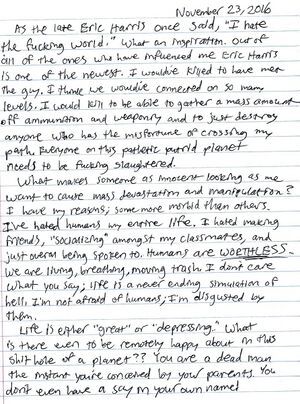 November 23, 2016
As the late Eric Harris once said, "I hate
the fucking world." What an inspiration. Out of
all of the ones who have influenced me Eric Harris
is one of the newest. I would've killed to have met
the guy. I think we would've connected on so many
levels. I would kill to be able to gather a mass amount
of ammunition and weaponry and to just destroy
anyone who has the misfortune of crossing my
path. Everyone on this pathetic putrid planet
needs to be fucking slaughtered.
What makes someone as innocent looking as me
want to cause mass devastation and manipulation?
I have my reasons; some more morbid than others.
I've hated humans my entire life. I hated making
friends, "socializing" amongst my classmates, and
just overal being spoken to. Humans are WORTHLESS.
We are living, breathing, moving trash. I don't care
what you say; life is a never ending simulation of
hell. I'm not afraid of humans; I'm disgusted by
them.
Life is either "great" or "depressing." What
is there even to be remotely happy about in this
shit hole of a planet?? You are a dead man
the instant you're conceived by your parents. You
don't even have a say in your own name!